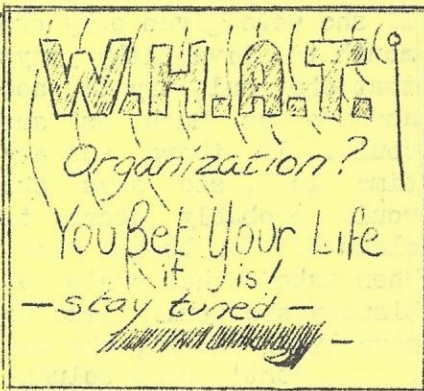 W.H.A.T.
Organization?
You Bet Your Life
it is!
- stay tuned -